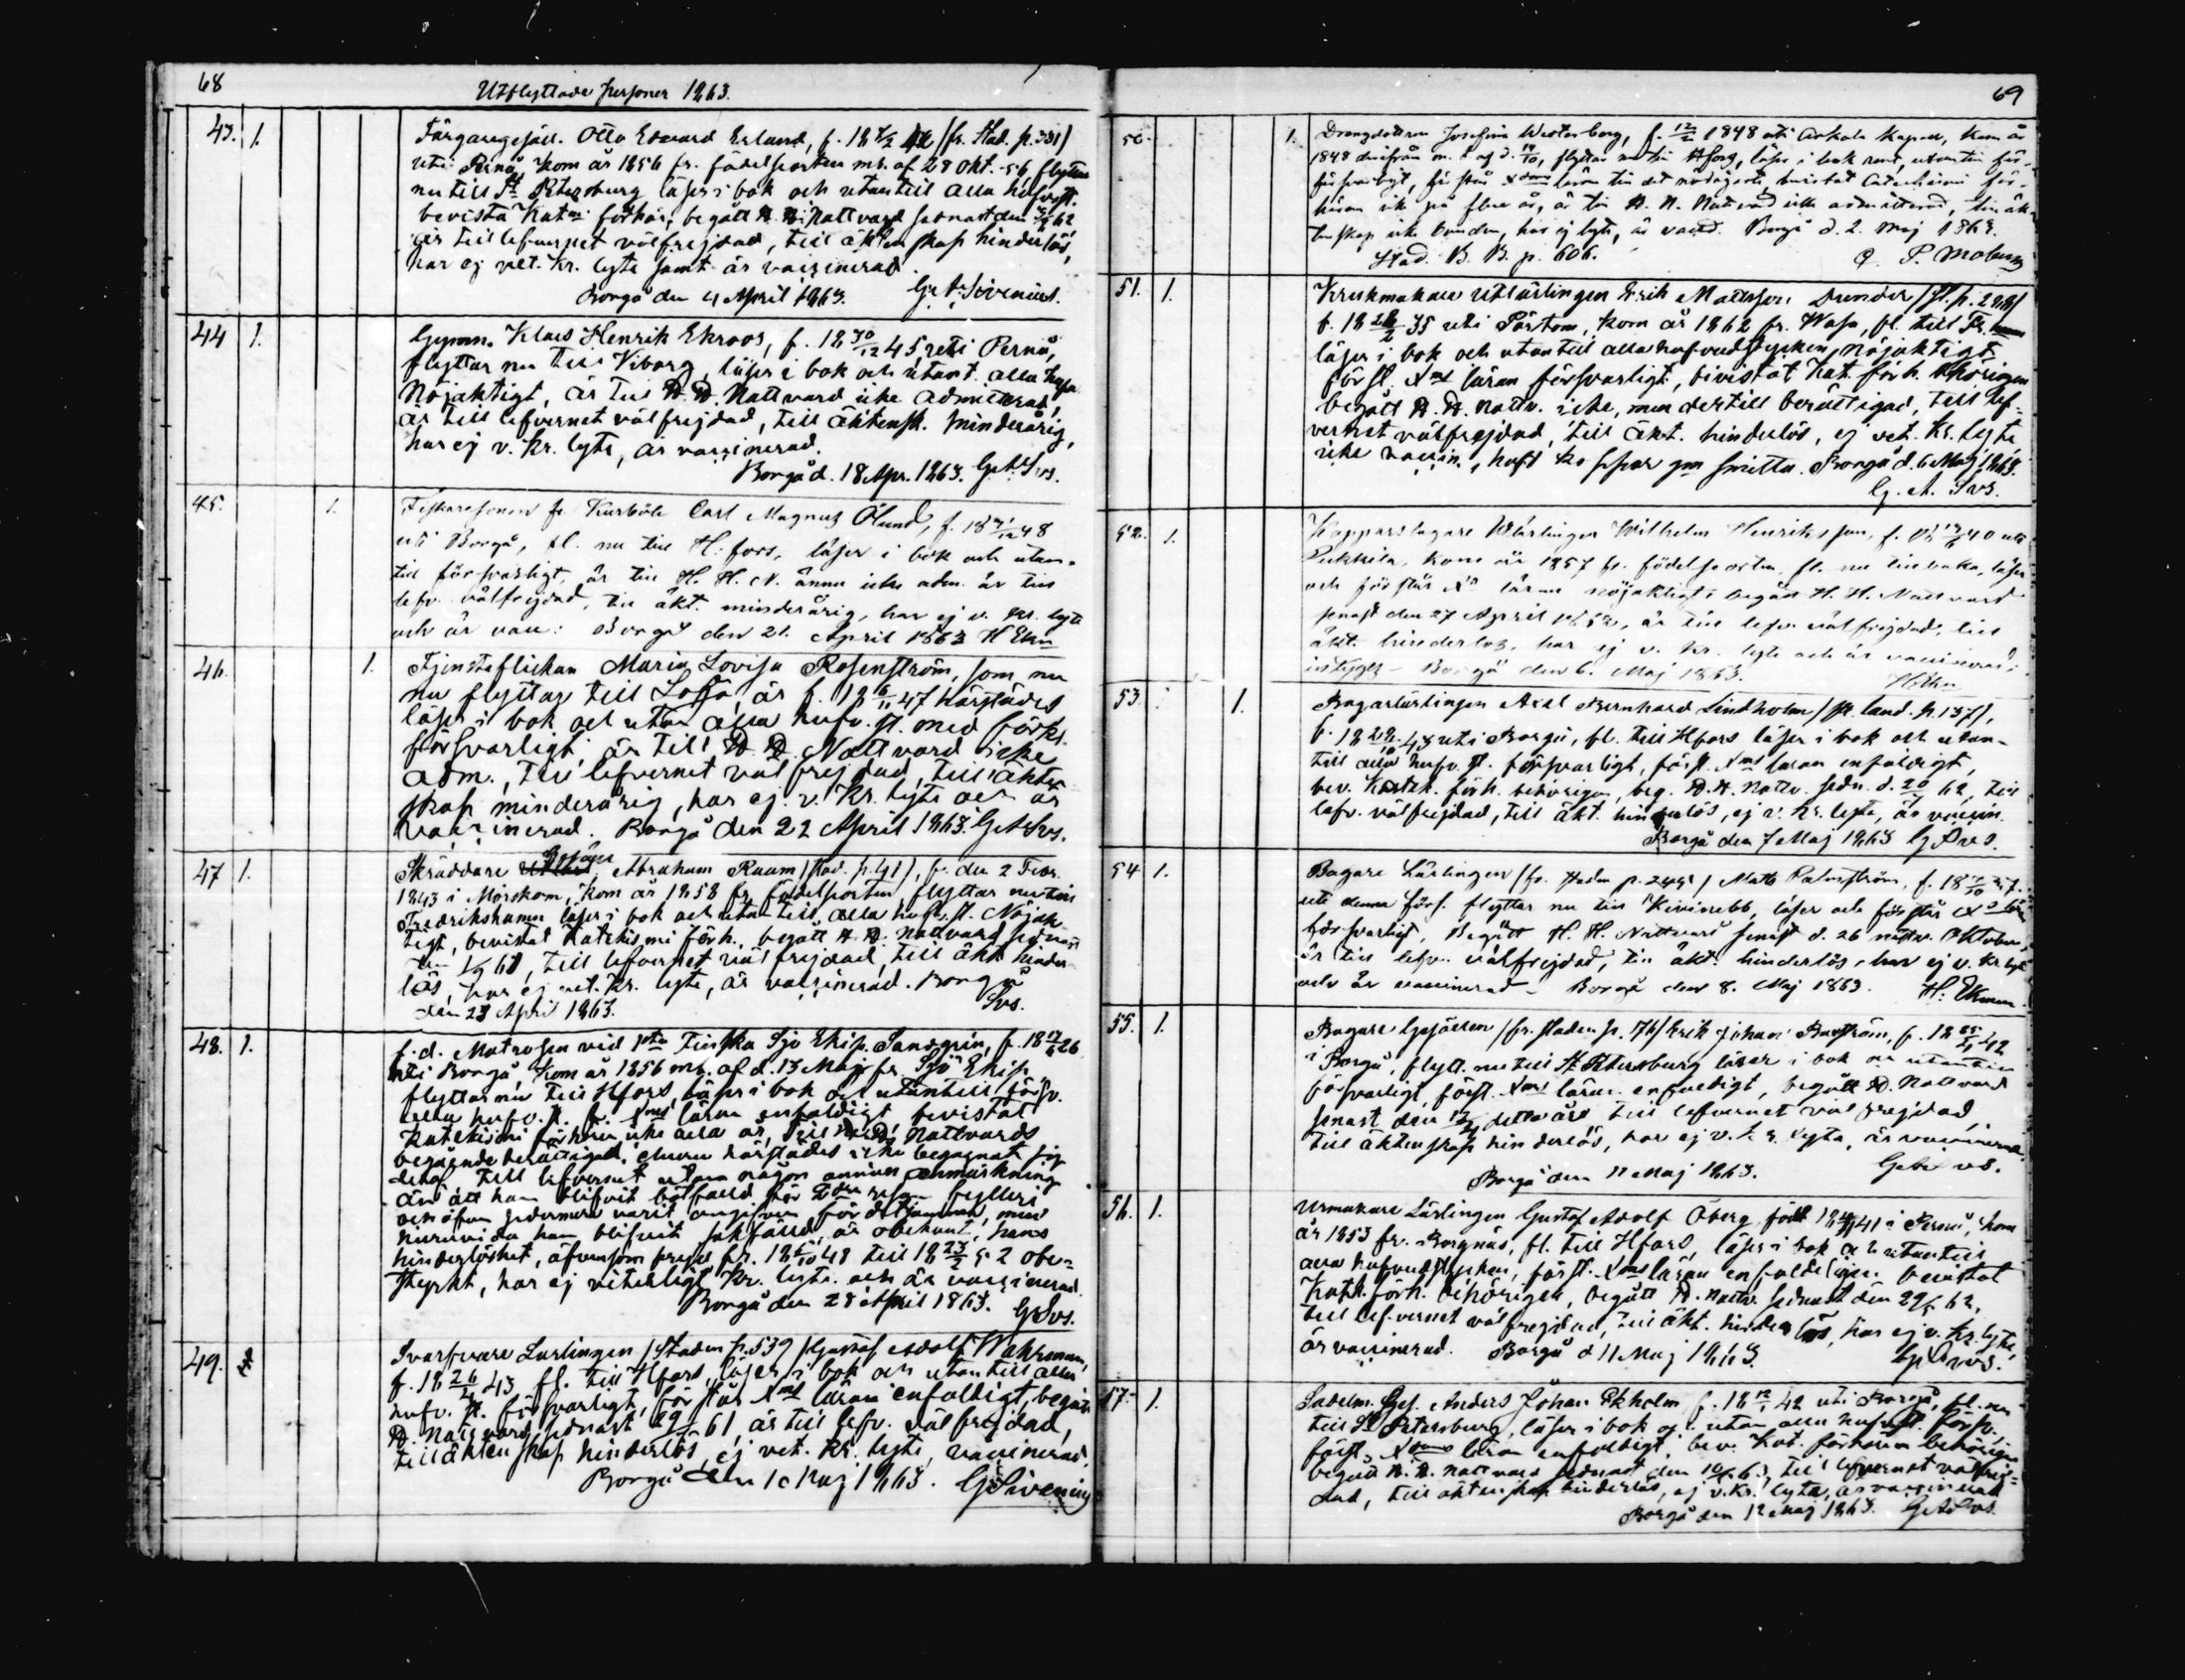 68
Utflyttade personer 1863.
43. 1. Färgaregesäll. Otto Edvard Erlund, f. 18 /2 42 (fr. Stad. p. 331)
uti Pernå, kom år 1856 fr. födelseorten mb. af 28 Okt. -56, flyttar
nu till St Petersburg läser i bok och utantill alla hufvst.
bevistat Kat. förhör, begått H. H. Nattvard sednast den 62
är till lefvernet välfrejdad, till äktenskap hinderlös,
har ej vet. Kr. lyte samt är vaccinerad.
Borgå den 4 April 1863. G. A. Sivenius.
44 1. Gymn. Klaes Henrik Ekroos, f. 18 30/12 45 uti Pernå,
flyttar nu till Viborg, läser i bok och utant. alla hufv
Nöjaktigt, är till H. H. Nattvard icke admitterad,
är till lefvernet välfrejdad, till äktensk. minderårig,
har ej v. Kr. lyte, är vaccinerad.
Borgå d. 18 Apr. 1863. G. A. Svs.
45. 1. Fiskaresonen fr. Kurböle Carl Magnus Ölund, f. 18 31/12 48
uti Borgå, fl. nu till H:fors, läser i bok och utan-
till försvarligt, är till H. H. N. ännu icke adm. är till
lefv. välfrejdad, till äkt. minderårig, har ej v. Kr. lyte
och är vacc: Borgå den 21. April 1863 H Ekn
46. 1. Tjensteflickan Maria Lovisa Rosenström, som nu
nu flyttar till Lovisa, är f. 18 6/11 47 härstädes
läser i bok och utan alla hufv. st. med förkl.
försvarligt, är till H. H. Nattvard icke
adm., till lefvernet välfrejdad, till äkten-
skap minderårig, har ej. v. Kr. lyte och är
vaccinerad. Borgå den 22 April 1863. G. A. Svs.
47 1. Skräddare Gesällen Abraham Raum (Stad. p. 41), f. den 2 Febr.
1843 i Mörskom, kom år 1858 fr. födelseorten flyttar nu till
Fredrikshamn läser i bok och utantill alla hufv. st. Nöjak-
tigt, bevistat Katekismi förh., begått H. H. Nattvard sednast
den 61, till lefvernet välfrejdad, till äkt. hinder-
lös, har ej vet. Kr. lyte, är vaccinerad. Borgå
den 23 April 1863. Svs.
48. 1. f. d. Matrosen vid 1sta Finska Sjö Ekip. Sandgrin, f. 18 17/6 26
uti Borgå, kom år 1856 mb. af d. 13 Maj fr. Sjö Ekip.
flyttar nu till Hfors, läser i bok och utantill försv.
alla hufv. st. fr. Xms läran enfaldigt bevistat
Katekismi förhören icke alla år, till H. H. Nattvards
begående berättigad, ehuru härstädes icke begagnat sig
deraf. till lefvernet utan någon annan anmärkning
än att han blifvit bötfälld för 2dra resan fylleri
och äfven sedermera varit angifven för detsamma, men
huruvida han blifvit sakfälld, är obekant, hans
hinderlöshet, äfvensom frejd fr. 18 /10 48 till 18 23/2 52 obe-
styrkt, har ej veterligt Kr. lyte. och är vaccinerad.
Borgå den 28 April 1863. G Svs.
49. Svarfvare Lärlingen (Staden p. 539) Gustaf Adolf Wahrman,
f. 18 26/4 43, fl. till Hfors, läser i bok och utantill alla
hufv. st. försvarligt, förstår Xms läran enfaldigt, begått
H. Nattvard sednast 29/ 61, är till lefv. välfrejdad,
till äktenskap hinderlös, ej vet. Kr. lyte, vaccinerad.
Borgå den 1 Maj 1863. G Sivenius
69
50. 1. Drengdottren Josefina Westerberg, f. 12/2 1848 uti Askola Kapell, kom år
1848 derifrån m. b. af d. 14/10, flyttar nu till Hfors, läser i bok rent, utantill för-
försvarligt, förstår Xdoms läran till det nödigaste, bevistat Catechismi för-
hören ick på flere år, är till H. H. Nattvard icke admitterad, till äk-
tenskap icke bunden, har ej lyte, är vacc. Borgå d. 2. Maj 1863.
Stad. B. B. p. 606. P. Moberg
51. 1. Krukmakare Utlärlingen Erik Mattsson Dunder (St. p. 288)
f. 18 28/2 35 uti Pörtom, kom år 1862 fr. Wasa, fl. till Fr.hamn
läser i bok och utantill alla hufvudstycken, nöjaktigt
försl. Xms läran försvarligt, bevistat Kat. förh. behörigen
begått H. H. Nattv. icke, men dertill berättigad, till lef-
vernet välfrejdad, till äkt. hinderlös, ej vet. Kr. lyte,
icke vaccin., haft koppor gm smitta. Borgå d. 6 Maj 1863.
G. A. Svs.
52. 1. Kopparslagare Utlärlingen Wilhelm Henriksson, f. 18 40 uti
Pukkila, kom år 1857 fr. födelseorten, fl. nu tillbaka, läser
och förstår X läran nöjaktigt, begått H. H. Nattvard
senast den 27 April 1862, är till lefv. välfrejdad, till
äkt. hinderlös, har ej v. Kr. lyte och är vaccinerad,
intygas Borgå den 6. Maj 1863. H Ekn
53. 1. Bagarlärlingen Axel Bernhard Lindholm (fr. land. p. 137),
f. 18 28/10 43 uti Borgå, fl. till Hfors läser i bok och utan-
till alla hufv. st. försvarligt, först. Xms läran enfaldigt,
bev. Katek. förh. behörigen, beg. H. H. Nattv. sedn. d. 20/ 62, till
lefv. välfrejdad, till äkt. hinderlös, ej v. Kr. lyte, är vaccin.
Borgå den 7 Maj 1863 G Svs.
54 1. Bagare Lärlingen (fr. staden p. 245) Matts Palmström, f. 18
uti denna förs. flyttar nu till Kivinebb, läser och förstår X läran
försvarligt, Begått H. H. Nattvard senast d. 26 nästv. Oktober,
är till lefv. välfrejdad, till äkt. hinderlös, har ej v. Kr. lyte
och är vaccinerad. Borgå den 8. Maj 1863. H: Ekman
55. 1. Bagare Gesällen (fr. staden p. 176) Erik Johan Bergström, f. 18 42
i Borgå, flytt. nu till St Petersburg läser i bok och utantill
försvarligt, först. Xms läran enfaldigt, begått H. Nattvard
senast den detta år till lefvernet välfrejdad,
till äktenskap hinderlös, har ej v. Kr. lyte, är vaccinerad.
Borgå den 11 Maj 1863. G. A. Svs.
56. 1. Urmakare Lärlingen Gustaf Adolf Öberg, född 18 41 i Pernå, kom
år 1853 fr. Borgnäs, fl. till Hfors, läser i bok och utantill
alla hufvudstycken, först. Xms läran enfaldeligen. bevistat
Katek. förh. behörigen, begått H. Nattv. sednast den 29/ 62,
till lefvernet välfrejdad, till äkt. hinderlös, har ej v. Kr. lyte,
är vaccinerad. Borgå d 11 Maj 1863. G Svs.
57. 1. Sadelm. Ges. Anders Johan Ekholm f. 18 12/1 42 uti Borgå, fl. nu
till St Petersburg, läser i bok och utan alla hufvst. försv.
först. Xdoms läran enfaldigt, bev. Kat. förhören behörigen
begått H. H. Nattvard sednast den 10/ 63, till lefvernet välfrej-
dad, till äktenskap hinderlös, ej v. Kr. lyte, är vaccinerad
Borgå den 12 Maj 1863. G. A. Svs.